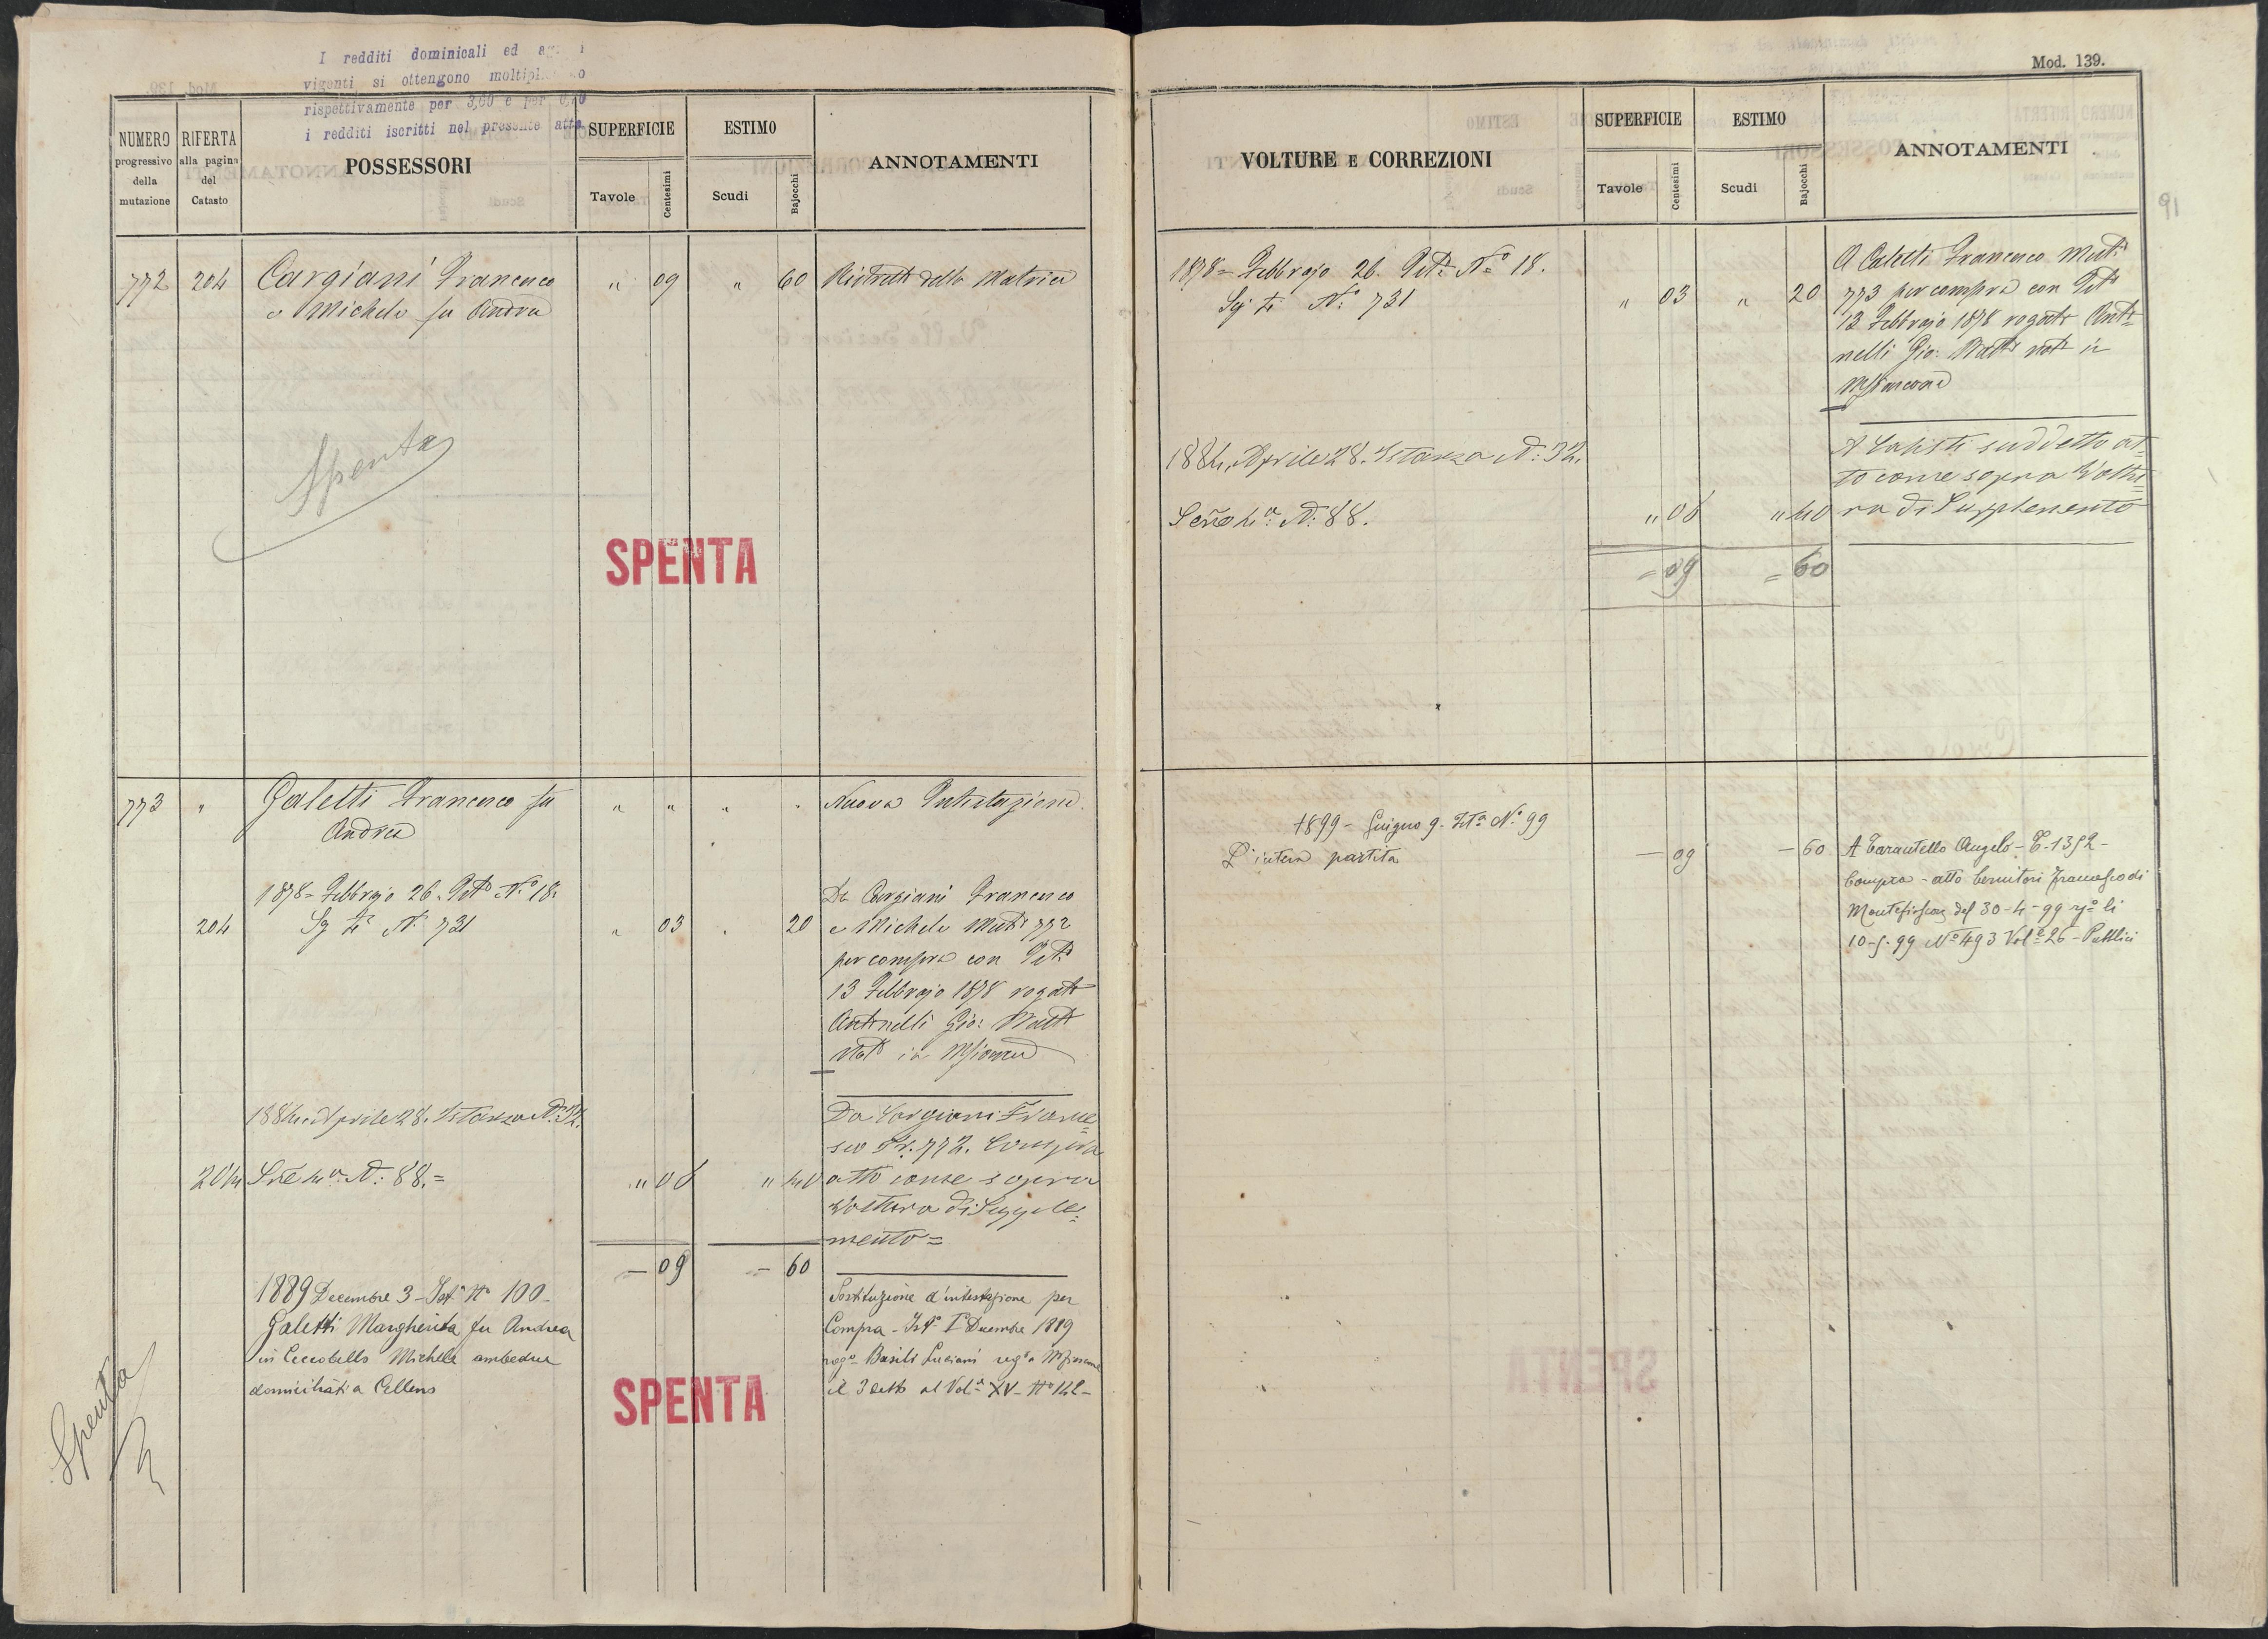 I redditi dominicali ed
vigenti si ottengono
rispettivamente per 3,60 e per 0,70
i redditi iscritti nel presente atto
NUMERO progressivo della mutazione
RIFERTA alla pagina del Catasto
POSSESSORI
SUPERFICIE
Tavole Centesimi
ESTIMO
Scudi Bajocchi
ANNOTAMENTI
772 204 Cargiani Francesco " 09 " 60 Ristretto della Matrice
e Michele fu Andrea
Spenta
SPENTA
773 " Galetti Francesco fu " " " " Nuova Intestazione
Andrea
1878 = Febbrajo 26. Ist. N.º 18.
204 Sez 4ª N. 731 " 03 " 20
Da Cargiani Francesco
e Michele Mut. 772
per compra con Ist.
13 Febbrajo 1878 rogato
Antonelli Gio: Batt
Not in Mfiascone
1884. Aprile 28. Istanza N: 32.
204 Sez 4ª N: 88. = " 06 " 40
Da Cargiani France=
sco Pr. 772. Compra
atto come sopra
Voltura di Supple=
mento =
— 09 — 60
1889 Decembre 3 - Ist. Nº 100 -
Galetti Margherita fu Andrea
in Ceccobello Michele ambedue
domiciliati a Celleno
Sostituzione d'intestazione per
Compra - Ist. 1º Decembre 1889
rogº Basili Luciani regº a Mfiascone
il 3 detto al Vol. XV - Nº 142 -
Spenta
SPENTA
Mod. 139.
91
VOLTURE E CORREZIONI
SUPERFICIE
Tavole Centesimi
ESTIMO
Scudi Bajocchi
ANNOTAMENTI
1878 = Febbrajo 26. Ist. Nº 18.
Sez 4ª Nº 731 " 03 " 20
A Galetti Francesco Mut.
773 per compra con Ist.
13 Febbrajo 1878 rogato Anto=
nelli Gio: Batt Not in
Mfiascone
1884. Aprile 28. Istanza N: 32.
Sez 4ª N: 88. " 06 " 40
A Galetti suddetto at=
to come sopra Voltu=
ra di Supplemento
= 09 = 60
1899 - Giugno 9 - Ist. Nº 99
L'intera partita — 09 — 60
A Tarantello Angelo - P. 1392 -
Compra - atto Cernitori Francesco di
Montefiascone del 30-4-99 rº li
10-5-99 Nº 493 Vol. 26 - Pubblici